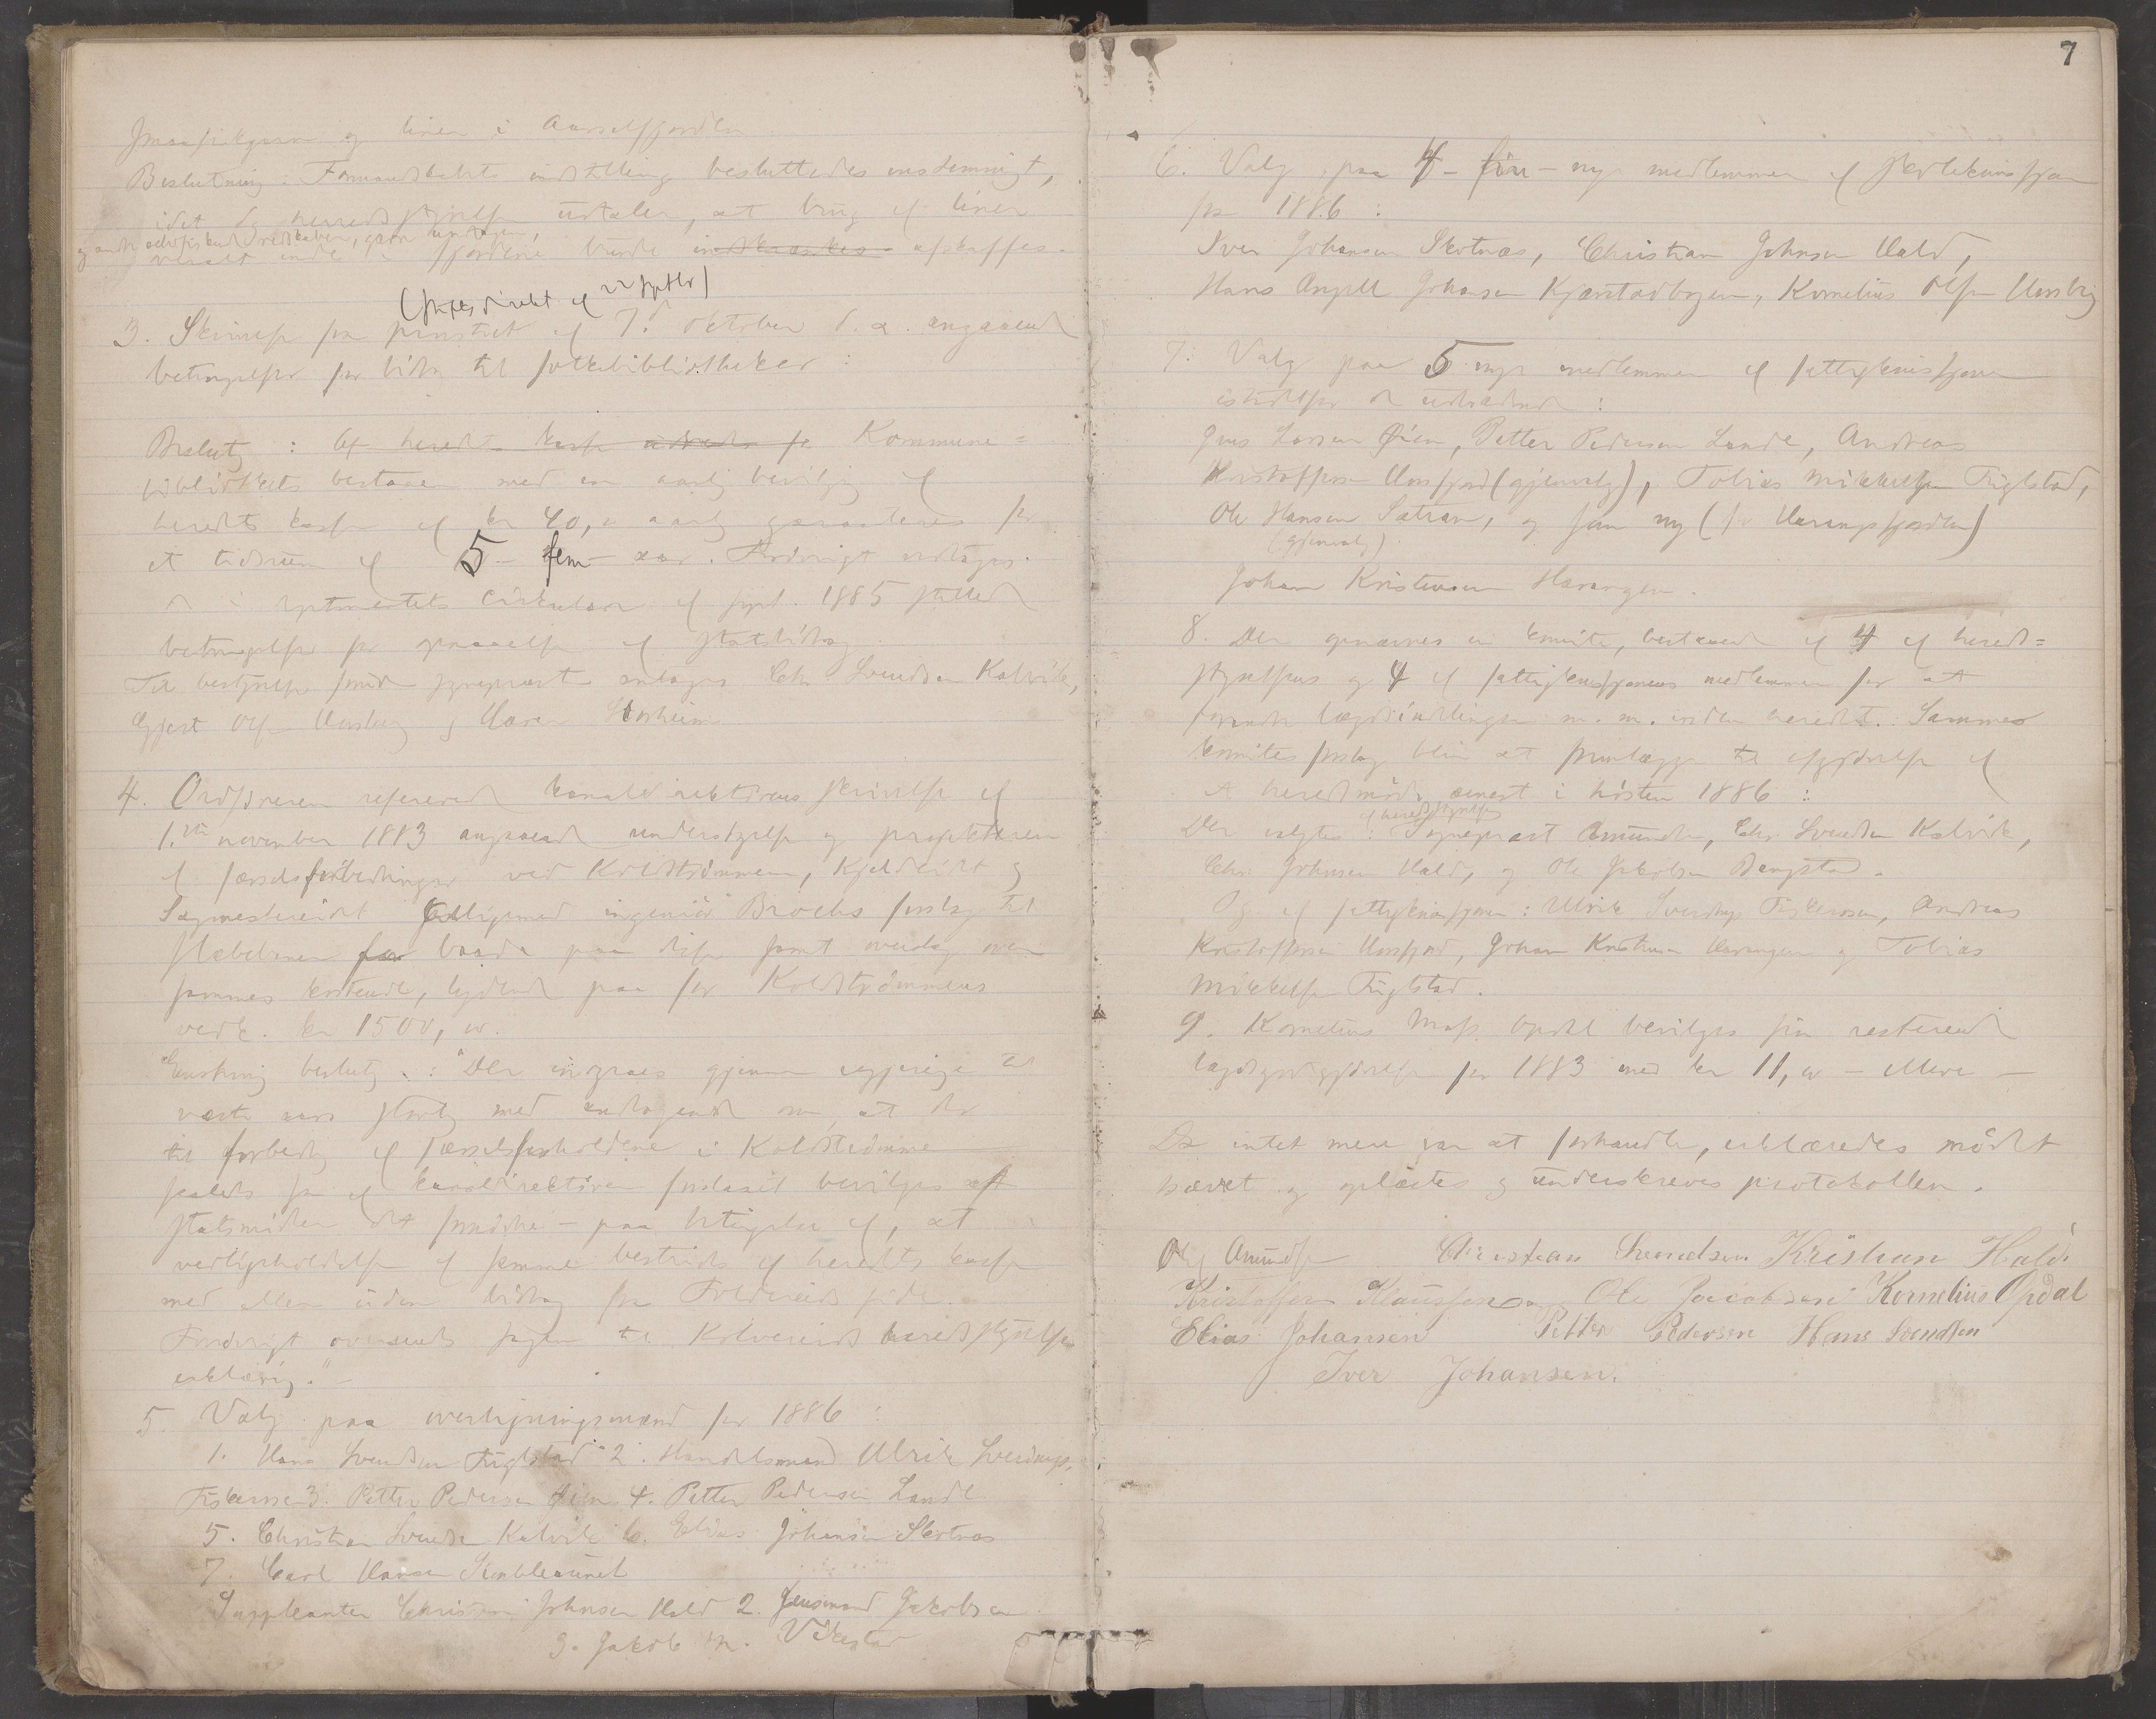 og linen i Aarselfjorden
Beslutning: Formandskabets indstilling besluttedes enstemmigt,
idet herredsstyrelsen udtaler, at brug af liner
og andre redskaber, garn undtagen,
inde i fjordene burde indskrænkes afskaffes.
3. Skrivelse fra provstiet af 7. oktober d. a. angaaende
betingelser for bidrag til folkebibliotheker:
Beslutn: Af heredets kasse Kommune=
bibliotekets bestaaen med en aarlig bevilgn. af
heredets kasse af kr 40,00 aarlig garanteres for
et tidsrum af 5 - fem - aar. Forøvrigt vedtages
de i departementets cirkulære af sept. 1885 stillede
betingelser for opnaaelse af statsbidrag.
Til bestyrelse foruden sognepræsten antages Chr. Svendsen Kalvik,
Gjert Olsen Horsberg og Haven Storheim
4. Ordføreren refererede kanaldirektørens skrivelse af
1.ste november 1883 angaaende undersøgelse og projekteren
af færdselsforbedringer ved Koldstrømmen, Kjeldeidet og
Sagmestereidet tilligemed ingeniør Brochs forslag til
slæbebaner for baade paa disse samt overslag over
sammes kostende, lydende paa for Koldstrømmens
vedk. kr 1500,00.
Enstemig beslutn.: "Der indgaaes gjennem regjeringen til
næste aars storting med andragende om, at der
til forbedring af færdselsforholdene i Koldstrømmen
af kanaldirektøren foreslaaet bevilges af
statsmidler det fornødne - paa betingelse af, at
vedligeholdelsen af samme bestrides af heredets kasse
med eller uden bidrag fra Foldereids side.
Forøvrigt oversendes sagen til Kolvereids heredsstyrelses
erklæring."
5. Valg paa overligningsmænd for 1886:
1. Hans Svendsen Fuglstad 2. Handelsmand Ulrik Sverdrup,
Fiskerosen 3. Petter Pedersen Øien 4. Petter Pedersen Lande
5. Christian Svendsen Kalvik 6. Elias Johansen Skotnæs
7. Carl Hansen
Suppleanter Christian Johnsen Hald 2. Jensmand Jakobsen
3. Jakob M. Vikestad
7
6. Valg paa 4 - fire - nye medlemmer af skolekommissionen
for 1886:
Iver Johansen Skotnæs, Christian Johnsen Hald,
Hans Angell Johansen Kjærstadbogen, Kornelius Olsen Horsberg
7. Valg paa 5 nye medlemmer af fattigkommissionen
istedetfor de udtrædende:
Jens Larsen Øien, Petter Pedersen Lande, Andreas
Kristoffersen Horsfjord (gjenvalg), Tobias Mikkelsen Fuglstad,
Ole Hansen Sætran, og som ny (for Harangsfjorden)
(gjenvalg)
Johan Kristensen Harangen.
8. Der opnævnes en komite, bestaaende af 4 af hereds=
styrelsens og 4 af fattigkommissionens medlemmer for at
lægdsinddelingen m. m. inden heredet. Samme
komites forslag blir at fremlægge til afgjørelse af
et heredsmøde senest i høsten 1886:
af heredsstyrelsen
Der valgtes: Sognepræst Amundsen, Chr. Svendsen Kalvik,
Chr. Johnsen Hald, og Ole Jakobsen Bangstad.
Og af fattigkommissionen: Ulrik Sverdrup Fiskerosen, Andreas
Kristoffersen Horsfjord, Johan Kristensen Harangen og Tobias
Mikkelsen Fuglstad.
9. Kornelius Mass. Opdal bevilges sin resterende
for 1883 med kr 11,00 -
Da intet mere var at forhandle, erklæredes mødet
hævet og oplæstes og underskreves protokollen.
Ole Amundsen Christian Svendsen Kristian Hald
Kristoffer Klaussen Ole Jacobsen Kornelius Opdal
Elias Johansen Petter Pedersen Hans Svendsen
Iver Johansen.